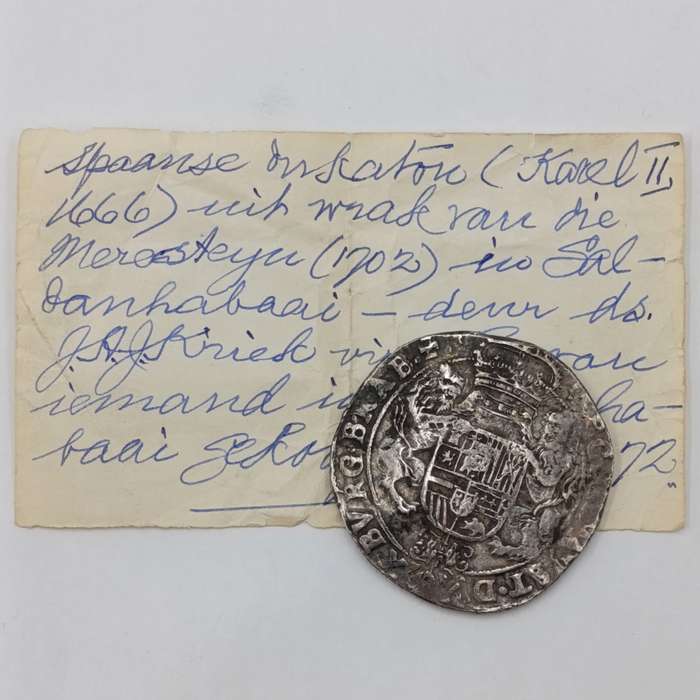 Spaanse dukaton (Karel II,
1666) uit wrak van die
Meresteyn (1702) in Sal-
danhabaai – deur ds.
J.A.J. Kriek van
iemand ha-
baai 72
BVRG·B·RAB·Z